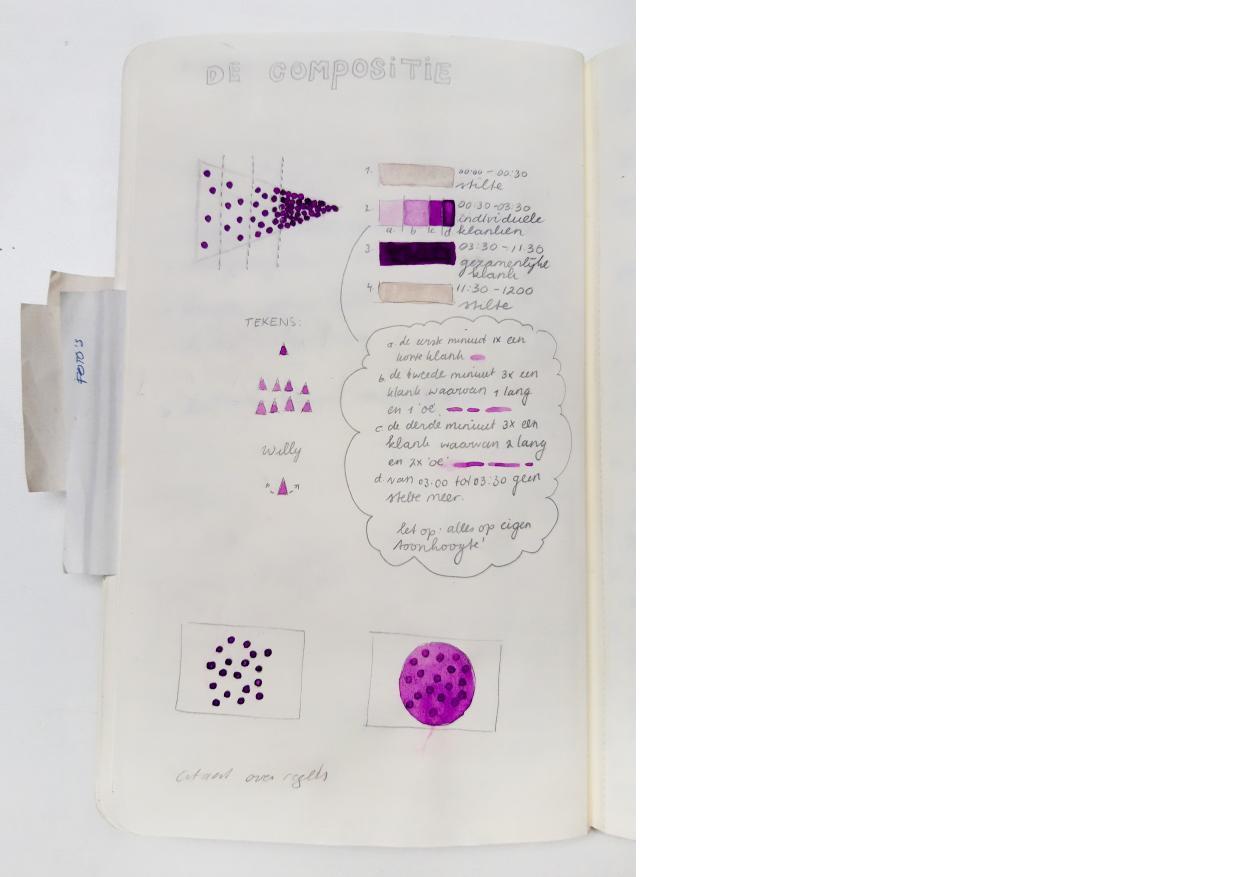 DE COMPOSITIE
1. 00:00 - 00:30
stilte
2. 00:30 - 03:30
individuele
klanken
a. b c d
3. 03:30 - 11:30
gezamenlijke
klank
4. 11:30 - 1200
stilte
TEKENS:
Willy
FOTO'S
a. de eerste minuut 1x een
korte klank
b. de tweede minuut 3x een
klank waarvan 1 lang
en 1 'oe'
c. de derde minuut 3x een
klank waarvan 2 lang
en 2x 'oe'
d. van 03.00 tot 03:30 geen
stilte meer.
let op: alles op eigen
toonhoogte!
over regels